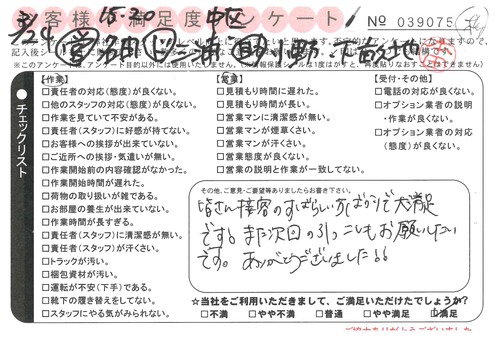 お客様満足度アンケート
No 039075
15-20 中区
3/24
※このアンケートは、アンケート目的以外には使用いたしません。
チェックリスト
【作業】
□責任者の対応(態度)が良くない。
□他のスタッフの対応(態度)が良くない。
□作業を見ていて不安がある。
□責任者(スタッフ)に好感が持てない。
□お客様への挨拶が出来ていない。
□ご近所への挨拶・気遣いが無い。
□作業開始前の内容確認がなかった。
□作業開始時間が遅れた。
□荷物の取り扱いが雑である。
□お部屋の養生が出来ていない。
□作業時間が長すぎる。
□責任者(スタッフ)に清潔感が無い。
□責任者(スタッフ)が汗くさい。
□トラックが汚い。
□梱包資材が汚い。
□運転が不安(下手)である。
□靴下の履き替えをしてない。
□スタッフにやる気がみられない。
【営業】
□見積もり時間に遅れた。
□見積もり時間が長い。
□営業マンに清潔感が無い。
□営業マンが煙草くさい。
□営業マンが汗くさい。
□営業態度が良くない。
□営業の説明と作業が一致してない。
【受付・その他】
□電話の対応が良くない。
□オプション業者の説明
・作業が良くない。
□オプション業者の対応
(態度)が良くない。
その他、ご意見・ご要望等ありましたらお書き下さい。
皆さん接客のすばらしい方ばかりで大満足
です。また次回の引っこしもお願いしたい
です。ありがとうございました!!
☆当社をご利用いただきまして、ご満足いただけたでしょうか?
□不満 □やや不満 □普通 □やや満足 □満足
ご協力ありがとうございました